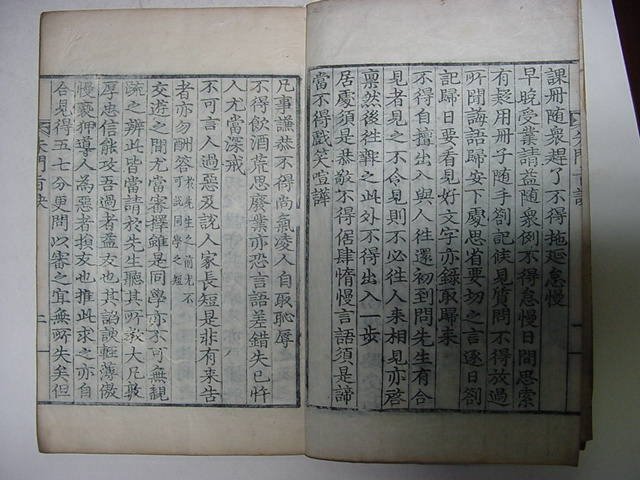 課冊隨衆趕了不得拖延怠慢
早晚受業請益隨衆例不得怠慢日間思索
有疑用冊子隨手劄記候見質問不得放過
所聞誨語歸安下處思省要切之言逐日劄
記歸日要看見好文字亦錄取歸来
不得自擅出入與人往還初到問先生有合
見者見之不令見則不必往人来相見亦啓
禀然後往報之此外不得出入一步
居處須是恭敬不得倨肆惰慢言語須是諦
當不得戲笑喧譁
凡事謙恭不得尚氣凌人自取恥辱
不得飲酒荒思廢業亦恐言語差錯失己忤
人尤當深戒
不可言人過惡及說人家長短是非有来告
者亦勿酬答於先生之前尤不可說同學之短
交遊之間尤當審擇雖是同學亦不可無親
疏之辨此皆當請於先生聽其所敎大凡敦
厚忠信能攻吾過者益友也其諂諛輕薄傲
慢褻狎導人為惡者損友也推此求之亦自
合見得五七分更問以審之宜無所失矣但
朱門旨訣
二